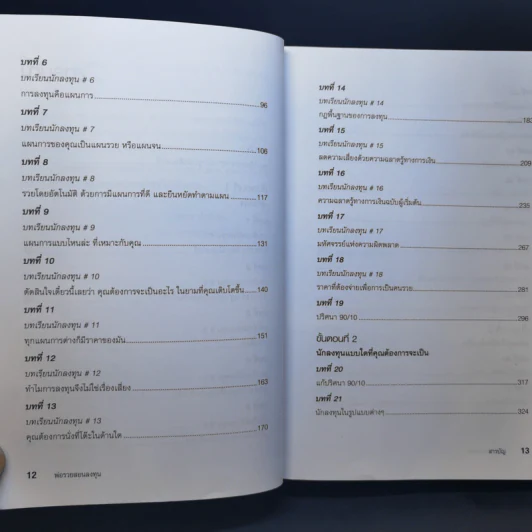 บทที่ 6
บทเรียนนักลงทุน # 6
การลงทุนคือแผนการ 96
บทที่ 7
บทเรียนนักลงทุน # 7
แผนการของคุณเป็นแผนรวย หรือแผนจน 108
บทที่ 8
บทเรียนนักลงทุน # 8
รวยโดยอัตโนมัติ ด้วยการมีแผนการที่ดี และยืนหยัดทำตามแผน 117
บทที่ 9
บทเรียนนักลงทุน # 9
แผนการแบบไหนล่ะ ที่เหมาะกับคุณ 131
บทที่ 10
บทเรียนนักลงทุน # 10
ตัดสินใจเดี๋ยวนี้เลยว่า คุณต้องการจะเป็นอะไร ในยามที่คุณเติบโตขึ้น 140
บทที่ 11
บทเรียนนักลงทุน # 11
ทุกแผนการต่างก็มีราคาของมัน 151
บทที่ 12
บทเรียนนักลงทุน # 12
ทำไมการลงทุนจึงไม่ใช่เรื่องเสี่ยง 163
บทที่ 13
บทเรียนนักลงทุน # 13
คุณต้องการนั่งที่โต๊ะในด้านใด 170
12 พ่อรวยสอนลงทุน
บทที่ 14
บทเรียนนักลงทุน # 14
กฎพื้นฐานของการลงทุน 183
บทที่ 15
บทเรียนนักลงทุน # 15
ลดความเสี่ยงด้วยความฉลาดรู้ทางการเงิน 209
บทที่ 16
บทเรียนนักลงทุน # 16
ความฉลาดรู้ทางการเงินฉบับผู้เริ่มต้น 235
บทที่ 17
บทเรียนนักลงทุน # 17
มหัศจรรย์แห่งความผิดพลาด 267
บทที่ 18
บทเรียนนักลงทุน # 18
ราคาที่ต้องจ่ายเพื่อการเป็นคนรวย 281
บทที่ 19
ปริศนา 90/10 296
ขั้นตอนที่ 2
นักลงทุนแบบใดที่คุณต้องการจะเป็น
บทที่ 20
แก้ปริศนา 90/10 317
บทที่ 21
นักลงทุนในรูปแบบต่างๆ 324
สารบัญ 13